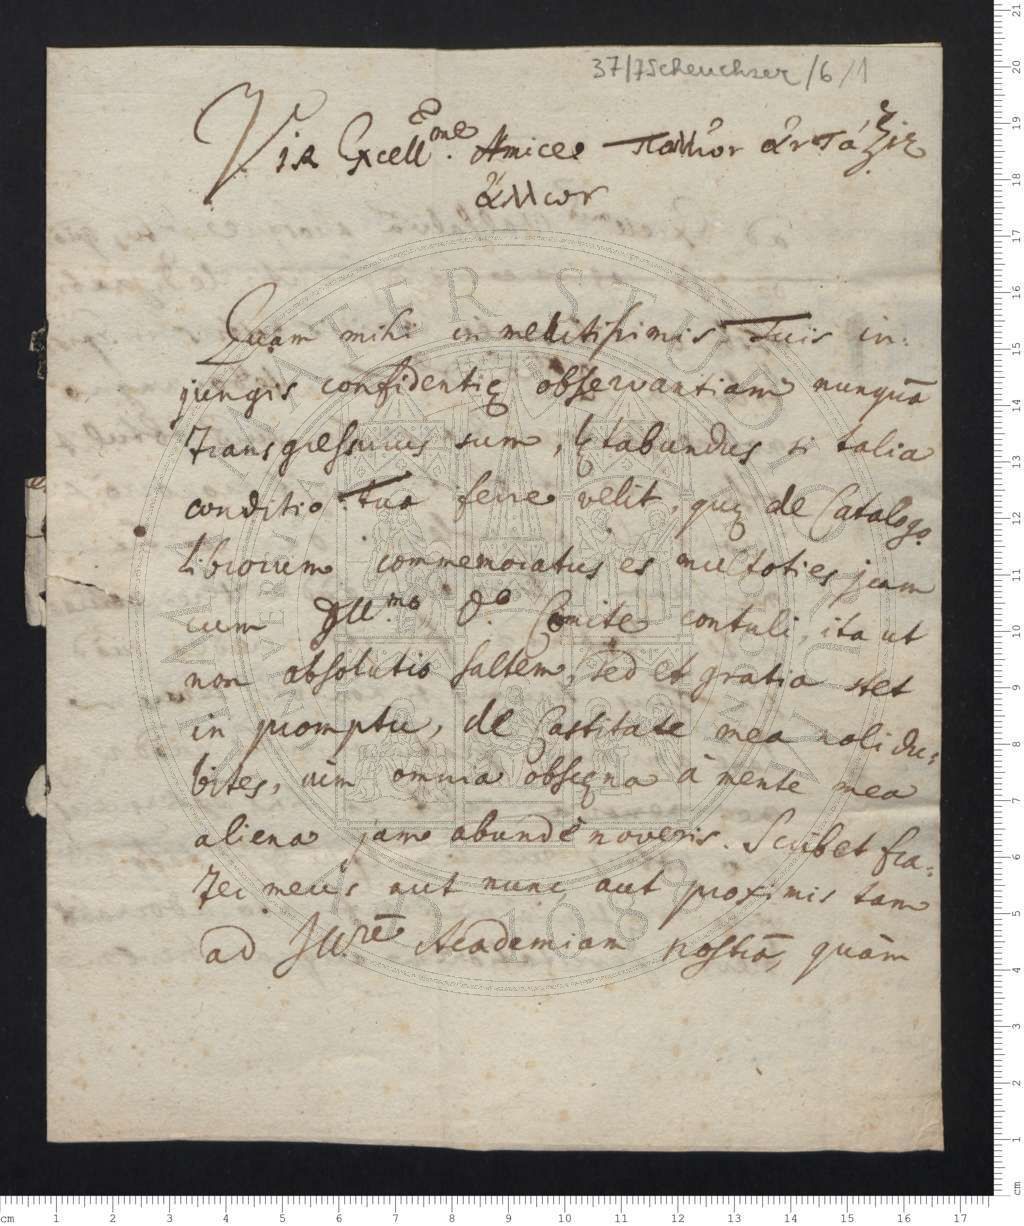 37/7 Scheuchzer/6/1
Vir Excell.me Amice πολλῶν ἀντάξιε
ἄλλων
Quam mihi in mellitissimis Tuis in-
jungis confidentię observantiam nunquā
transgressurus sum, lętabundus si talia
conditio Tua ferre velit, quę de Catalogo
librorum commemoratus es multoties jam
cum Ill.mo D.o Comite contuli, ita ut
non absolutio saltem, sed et gratia stet
in promptu, de Castitate mea noli du-
bites, cùm omnia obscęna à mente mea
aliena jam abundè noveris. Scribet fra-
ter meus aut nunc, aut proximis tam
ad Ill.rē Academiam nostrā, quàm